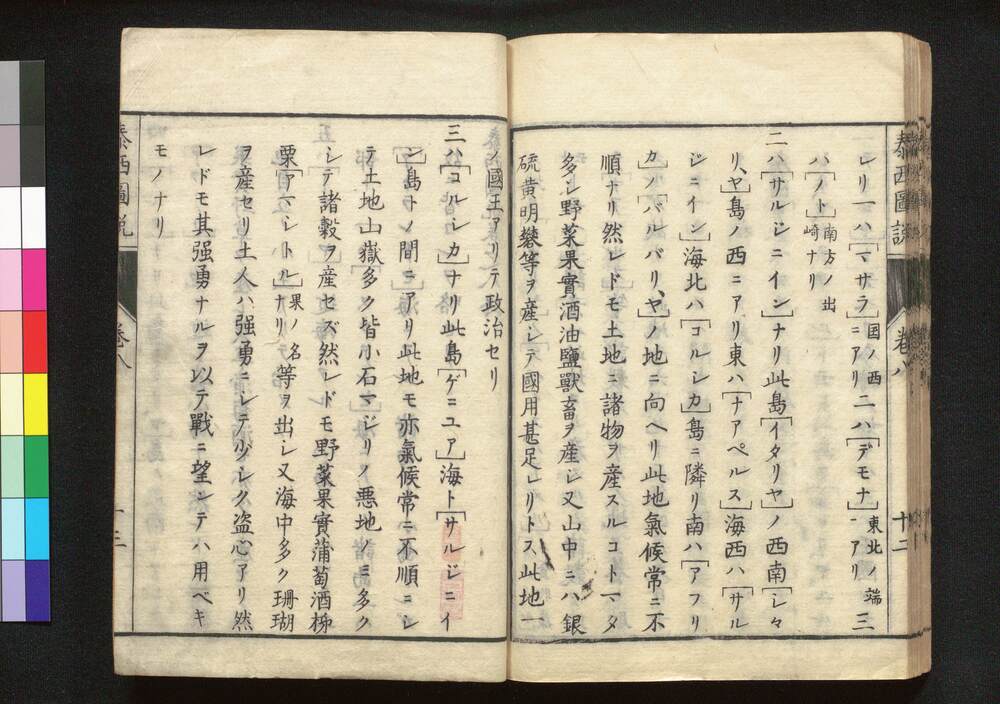 泰西圖説
卷八
十二
レリ一ハ「マサラ」國ノ西ニアリ二ハ「デモナ」東北ノ端ニアリ三
ハ「ノト」南方ノ出崎ナリ
二ハ「サルジニイン」ナリ此島「イタリヤ」ノ西南「シ々
リヤ」島ノ西ニアリ東ハ「ナアペルス」海西ハ「サル
ジニイン」海北ハ「コルシカ」島ニ隣リ南ハ「アフリ
カ」ノ「バルバリヤ」ノ地ニ向ヘリ此地氣候常ニ不
順ナリ然レドモ土地ニ諸物ヲ産スルコトマタ
多シ野菜果實酒油鹽獸畜ヲ産シ又山中ニハ銀
硫黄明礬等ヲ産シテ國用甚足レリトス此地一
ノ國王アリテ政治セリ
三ハ「コルシカ」ナリ此島「ゲニユア」海ト「サルジニイ
ン」島トノ間ニアリ此地モ亦氣候常ニ不順ニシ
テ土地山嶽多ク皆小石マジリノ悪地ノミ多ク
シテ諸穀ヲ産セズ然レドモ野菜果實蒲萄酒栁
栗「アマンドル」果ノ名ナリ等ヲ出シ又海中多ク珊瑚
ヲ産セリ土人ハ强勇ニシテハゲシク盗心アリ然
レドモ其强勇ナルヲ以テ戰ニ望ンテハ用ベキ
モノナリ
泰西圖説
卷八
十三